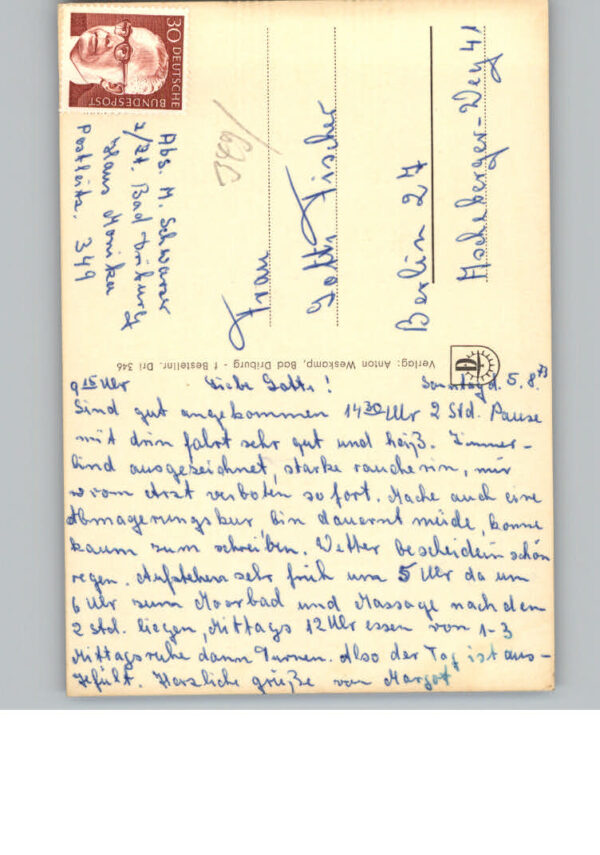 30
DEUTSCHE
BUNDESPOST
Abs. M. Schwarzer
z/Zt. Bad Driburg
Haus Monika
Postleitz. 349
Frau
Fischer
Berlin 27
Ascheberger-Weg 41
Verlag: Anton Weskamp, Bad Driburg - f Bestellnr. Dri 346
9 15 Uhr Liebe Sonntag d. 5.8.73
Sind gut angekommen 14 30 Uhr 2 Std. Pause
mit drin fahrt sehr gut und heiß. Zimmer-
ausgezeichnet, starke raucherin, mir
vom Arzt verboten sofort. Mache auch eine
Abmagerungskur, bin dauernt müde, konne
kaum zum schreiben. Wetter bescheiden schön
regen. Aufstehen sehr früh um 5 Uhr da um
6 Uhr zum Moorbad und Massage nach dem
2 Std. liegen, Mittags 12 Uhr essen von 1-3
Mittagsruhe dann Turnen. Also der Tag ist aus-
gefült. Herzliche grüße von Margot